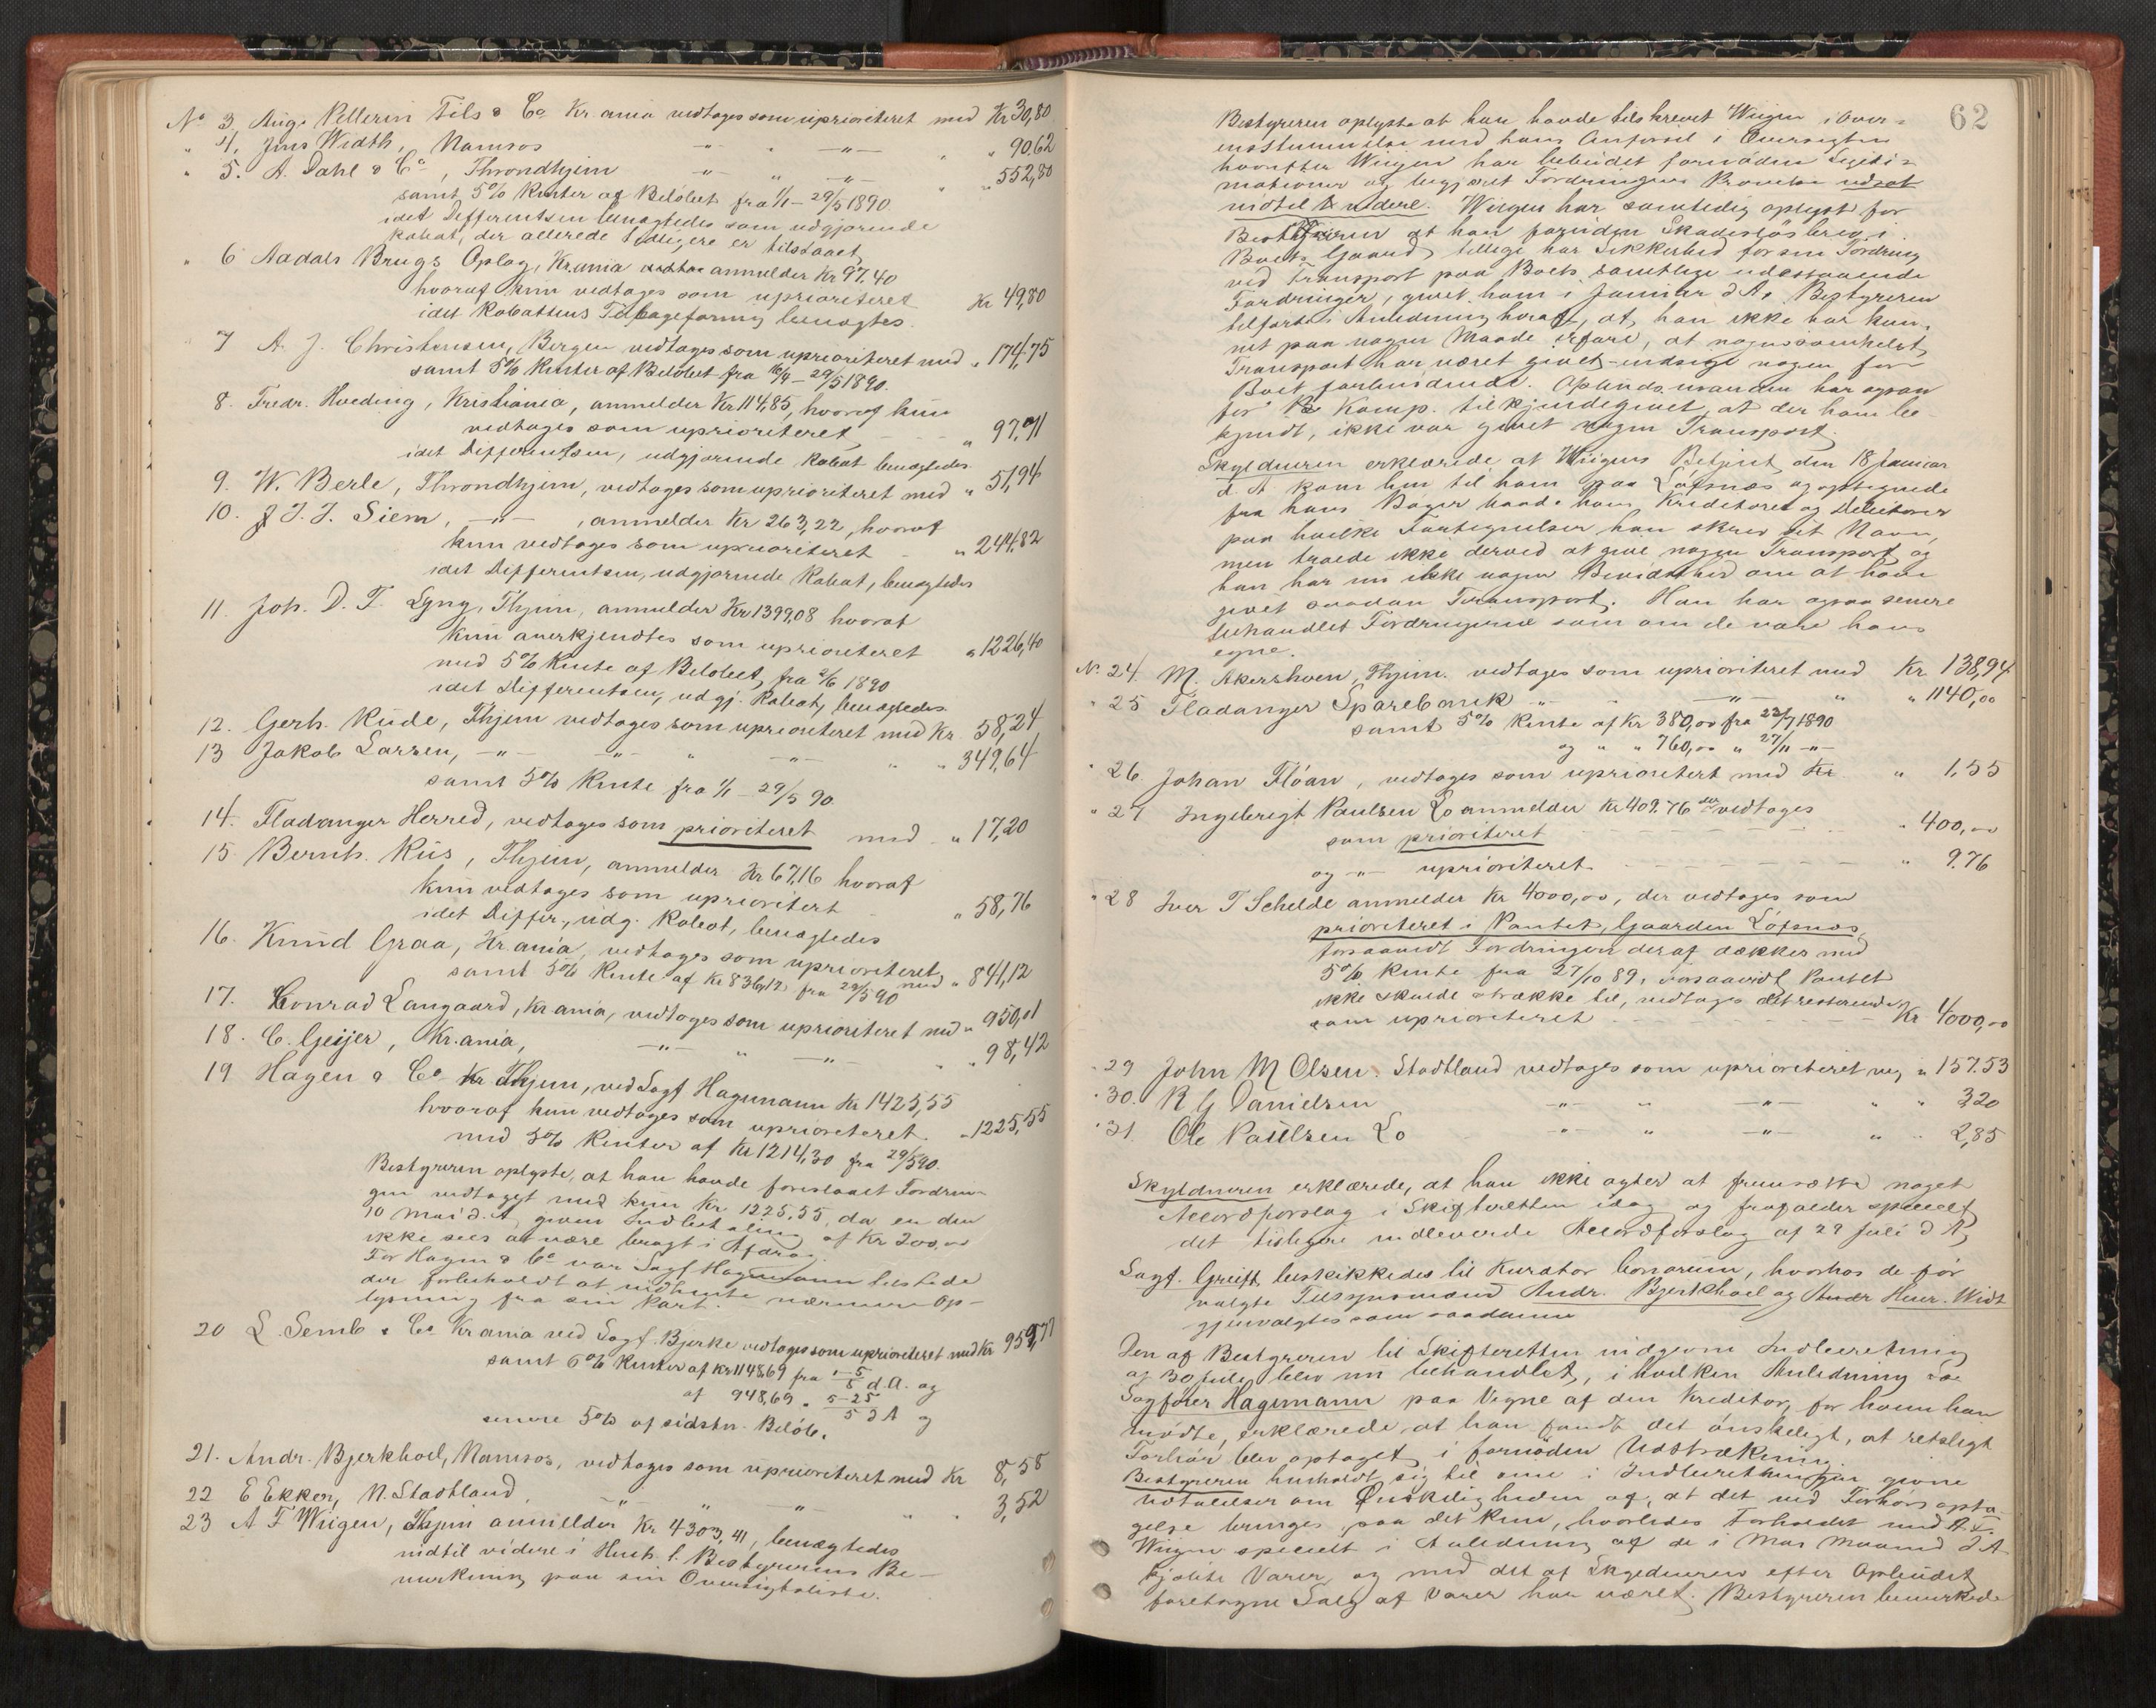 No 3, Aug. Pellerin Fils & Co Kr.ania vedtages som uprioriteret med Kr 30,80
" 4, Jins Width, Namsos -"- " -"- " " 90,62
" 5. A. Dahl & Co, Throndhjem -"- " -"- " " 552,80
samt 5% Renter af Beløbet fra 1/1 - 29/5 1890
idet Differentsen benægtedes som udgjørende
Rabat, der allerede tidligere er tilstaaet
" 6 Aadals Brugs Oplag, Kr.ania anmelder Kr 97.40
hvoraf kun vedtages som uprioriteret Kr 49,80
idet Rabattens Tilbageføring benægtes.
7 A. J. Christensen, Bergen vedtages som uprioriteret med " 174,75
samt 5% Renter af Beløbet fra 16/4 - 29/5 1890.
8. Fredr. Hoeding, Kristiania, anmelder Kr 114,85, hvoraf kun
vedtages som uprioriteret - - - " 97,71
idet Differentsen, udgjørende Rabat benægtedes
9. W. Berle, Throndhjem, vedtages som uprioriteret med " 51,94
10. J. J. Siem, -"- , anmelder Kr 263,22, hvoraf
kun vedtages som uprioriteret - " 244,82
idet Differentsen, udgjørende Rabat, benægtedes
11. Joh. D. T. Lyng, Thjem, anmelder Kr 1399,08 hvoraf
kun anerkjendtes som uprioriteret " 1226,40
med 5% Rente af Beløbet fra 2/6 1890
idet Differentsen, udgj. Rabat, benægtedes.
12. Gerh. Rude, Thjem vedtages som uprioriteret med Kr. 58,24
13 Jakob Larsen, -"- -"- " -"- " " 349,64
samt 5% Rente fra 1/1 - 29/5 90.
14. Fladanger Herred, vedtages som prioriteret med " 17,20
15. Bernh. Riis, Thjem, anmelder Kr 67,16 hvoraf
kun vedtages som uprioritert - " 58,76
idet Differ., udg. Rabat, benægtedes
16. Knud Graa, Kr.ania, vedtages som uprioriteret
med " 841,12
samt 5% Rente af Kr 836,12 fra 29/5 90
17. Conrad Langaard, Kr.ania, vedtages som uprioriteret med " 950,01
18. C. Geijer, Kr.ania, -"- " -"- " " 98,42
19 Hagen & Co Thjem, ved Sagf Hagemann Kr 1425,55
hvoraf kun vedtages som uprioriteret. " 1225,55
med 5% Renter af Kr 1214,30 fra 29/5 90.
Bestyreren oplyste, at han havde foreslaaet Fordrin-
gen vedtaget med kun Kr. 1225,55, da en den
10 Mai d. A. gjven Indbetaling af Kr 200,00
ikke sees at være bragt i Afdrag
For Hagen & Co var Sagf Hagemann tilstede
der forbeholdt at indhente nærmere Op-
lysning fra sin Part.
20 L. Semb & Co Kr.ania ved Sagf. Bjerke vedtages som uprioriteret med Kr 959,71
samt 6% Renter af Kr 1148,69 fra 1-5/5 d.A. og
af 948,69 " 5-25/5 d A og
senere 5% af sidstn. Beløb.
21. Andr. Bjerkhoel, Namsos, vedtages som uprioriteret med Kr 8,58
22 E Ekker, N. Stadtland -"- " -"- " " 3,52
23 A F Wiigen, Thjem anmelder Kr 4303,41, benægtedes
indtil videre i Henh. t. Bestyrerens Be-
mærkning paa sin Oversigtsliste.
62
Bestyreren oplyste at han havde tilskrevet Wiigen i Over-
ensstemmelse med hans Anførsel i Oversigten
hvorefter Wiigen har bebudet fornöden Legiti-
mationer og begjæret Fordringens Prøvelse udsat
indtil videre. Wiigen har samtidig oplyst for
Bestyreren at han foruden Skadesløsbrev i
Boets Gaard, tillige har Sikkerhed for sin Fordring
ved Transport paa Boets samtlige udestaaende
Fordringer, givet ham i Januar d A. Bestyreren
tilførte i Anledning heraf, at han ikke har kun-
net paa nogen Maade erfare, at nogensomhelst
Transport har været givet - endsige nogen for
Boet forbindende. Opbudsmanden har ogsaa
for Komp. tilkjendegivet, at der ham be-
kjendt, ikke var givet nogen Transport.
Skyldneren erklærede at Wiigens Betjent den 18 Januar
d. A. kom hen til ham paa Løfsnæs og optegnede
fra hans Bøger baade hans Kreditorer og Debitorer
paa hvilke Fortegnelser han skrev sit Navn,
men troede ikke derved at give nogen Transport og
han har nu ikke nogen Bevidsthed om at have
givet saadan Transport. Han har ogsaa senere
behandlet Fordringerne som om de vare hans
egne.
No 24. M. Akershoen, Thjem. vedtages som uprioriteret med Kr 138,94
" 25 Fladanger Sparebank " - -"- " " 1140,00
samt 5% Rente af Kr 380,00 fra 22/7 1890
og " " 760,00 " 27/11 -"-
" 26. Johan Flöan, vedtages som uprioritert med Kr. " 1,55
" 27 Ingebrigt Paulsen Lo anmelder Kr 409.76 der vedtages
som prioriteret - - - " 400,00
og -"- uprioriteret - - - " 9.76
" 28 Iver T Schelde anmelder Kr 4000,00, der vedtages som
prioriteret i Pantet, Gaarden Löfsnæs,
forsaavidt Fordringen deraf dækkes med
5% Rente fra 27/10 89, forsaavidt Pantet
ikke skulde strække til, vedtages det resterende
som uprioriteret - - - Kr 4000,00
" 29 John M Olsen. Stadtland vedtages som uprioriteret " 157.53
" 30. R G Danielsen -"- " -"- " " 3,20
" 31. Ole Paulsen Lo -"- " -"- " " 2,85
Skyldneren erklærede, at han ikke agter at fremsætte noget
Accordforslag i Skifteretten idag og frafalder specielt
det tidligere indleverede Accordforslag af 29 Juli d A,
Sagf. Greift beskikkedes til Kurator bonorum, hvorhos de før
valgte Tilsynsmænd Andr. Bjerkhoel og Henr. Widt
gjenvalgtes som saadanne
Den af Bestyreren til Skifteretten indgivne Indberetning
af 30 Juli blev nu behandlet, i hvilken Anledning
Sagfører Hagemann paa Vegne af den Kreditor, for hvem han
mödte, erklærede at han fandt det önskeligt, at retsligt
Forhör blev optaget i fornöden Udstrækning.
Bestyreren henholdt sig til sine i Indberetningen givne
Udtalelser om Önskeligheden af, at det ved Forhörs opta-
gelse bringes paa det Rene, hvorledes Forholdet med A. F.
Wiigen specielt i Anledning af de i Mai Maaned d A
kjøbte Varer, og med det af Skyldneren efter Opbudet
foretagne Salg af Varer har været. Bestyreren bemærkede